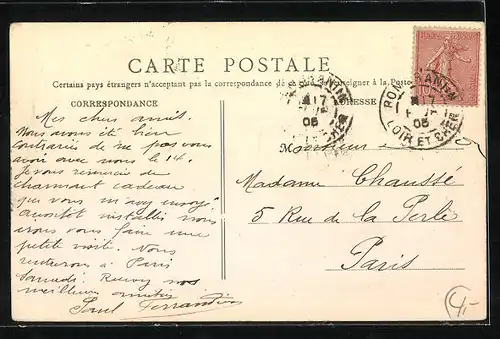 CARTE POSTALE
Certains pays étrangers n'acceptant pas la correspondance de se renseigner à la Poste
CORRESPONDANCE
ADRESSE
Mes chers amis.
Nous avons été bien
contrariés de ne pas vous
avoir avec nous le 14.
Je vous remercie du
charmant cadeau
que vous m'avez envoyé
aussitôt installés nous
irons vous faire une
petite visite. Nous
rentrerons à Paris
Samedi. Recevez nos
meilleures amitiés
Paul
Monsieur
Madame Chausse
5 Rue de la Perle
Paris
ROMORANTIN
17
05
LOIR ET CHER
10
4,-